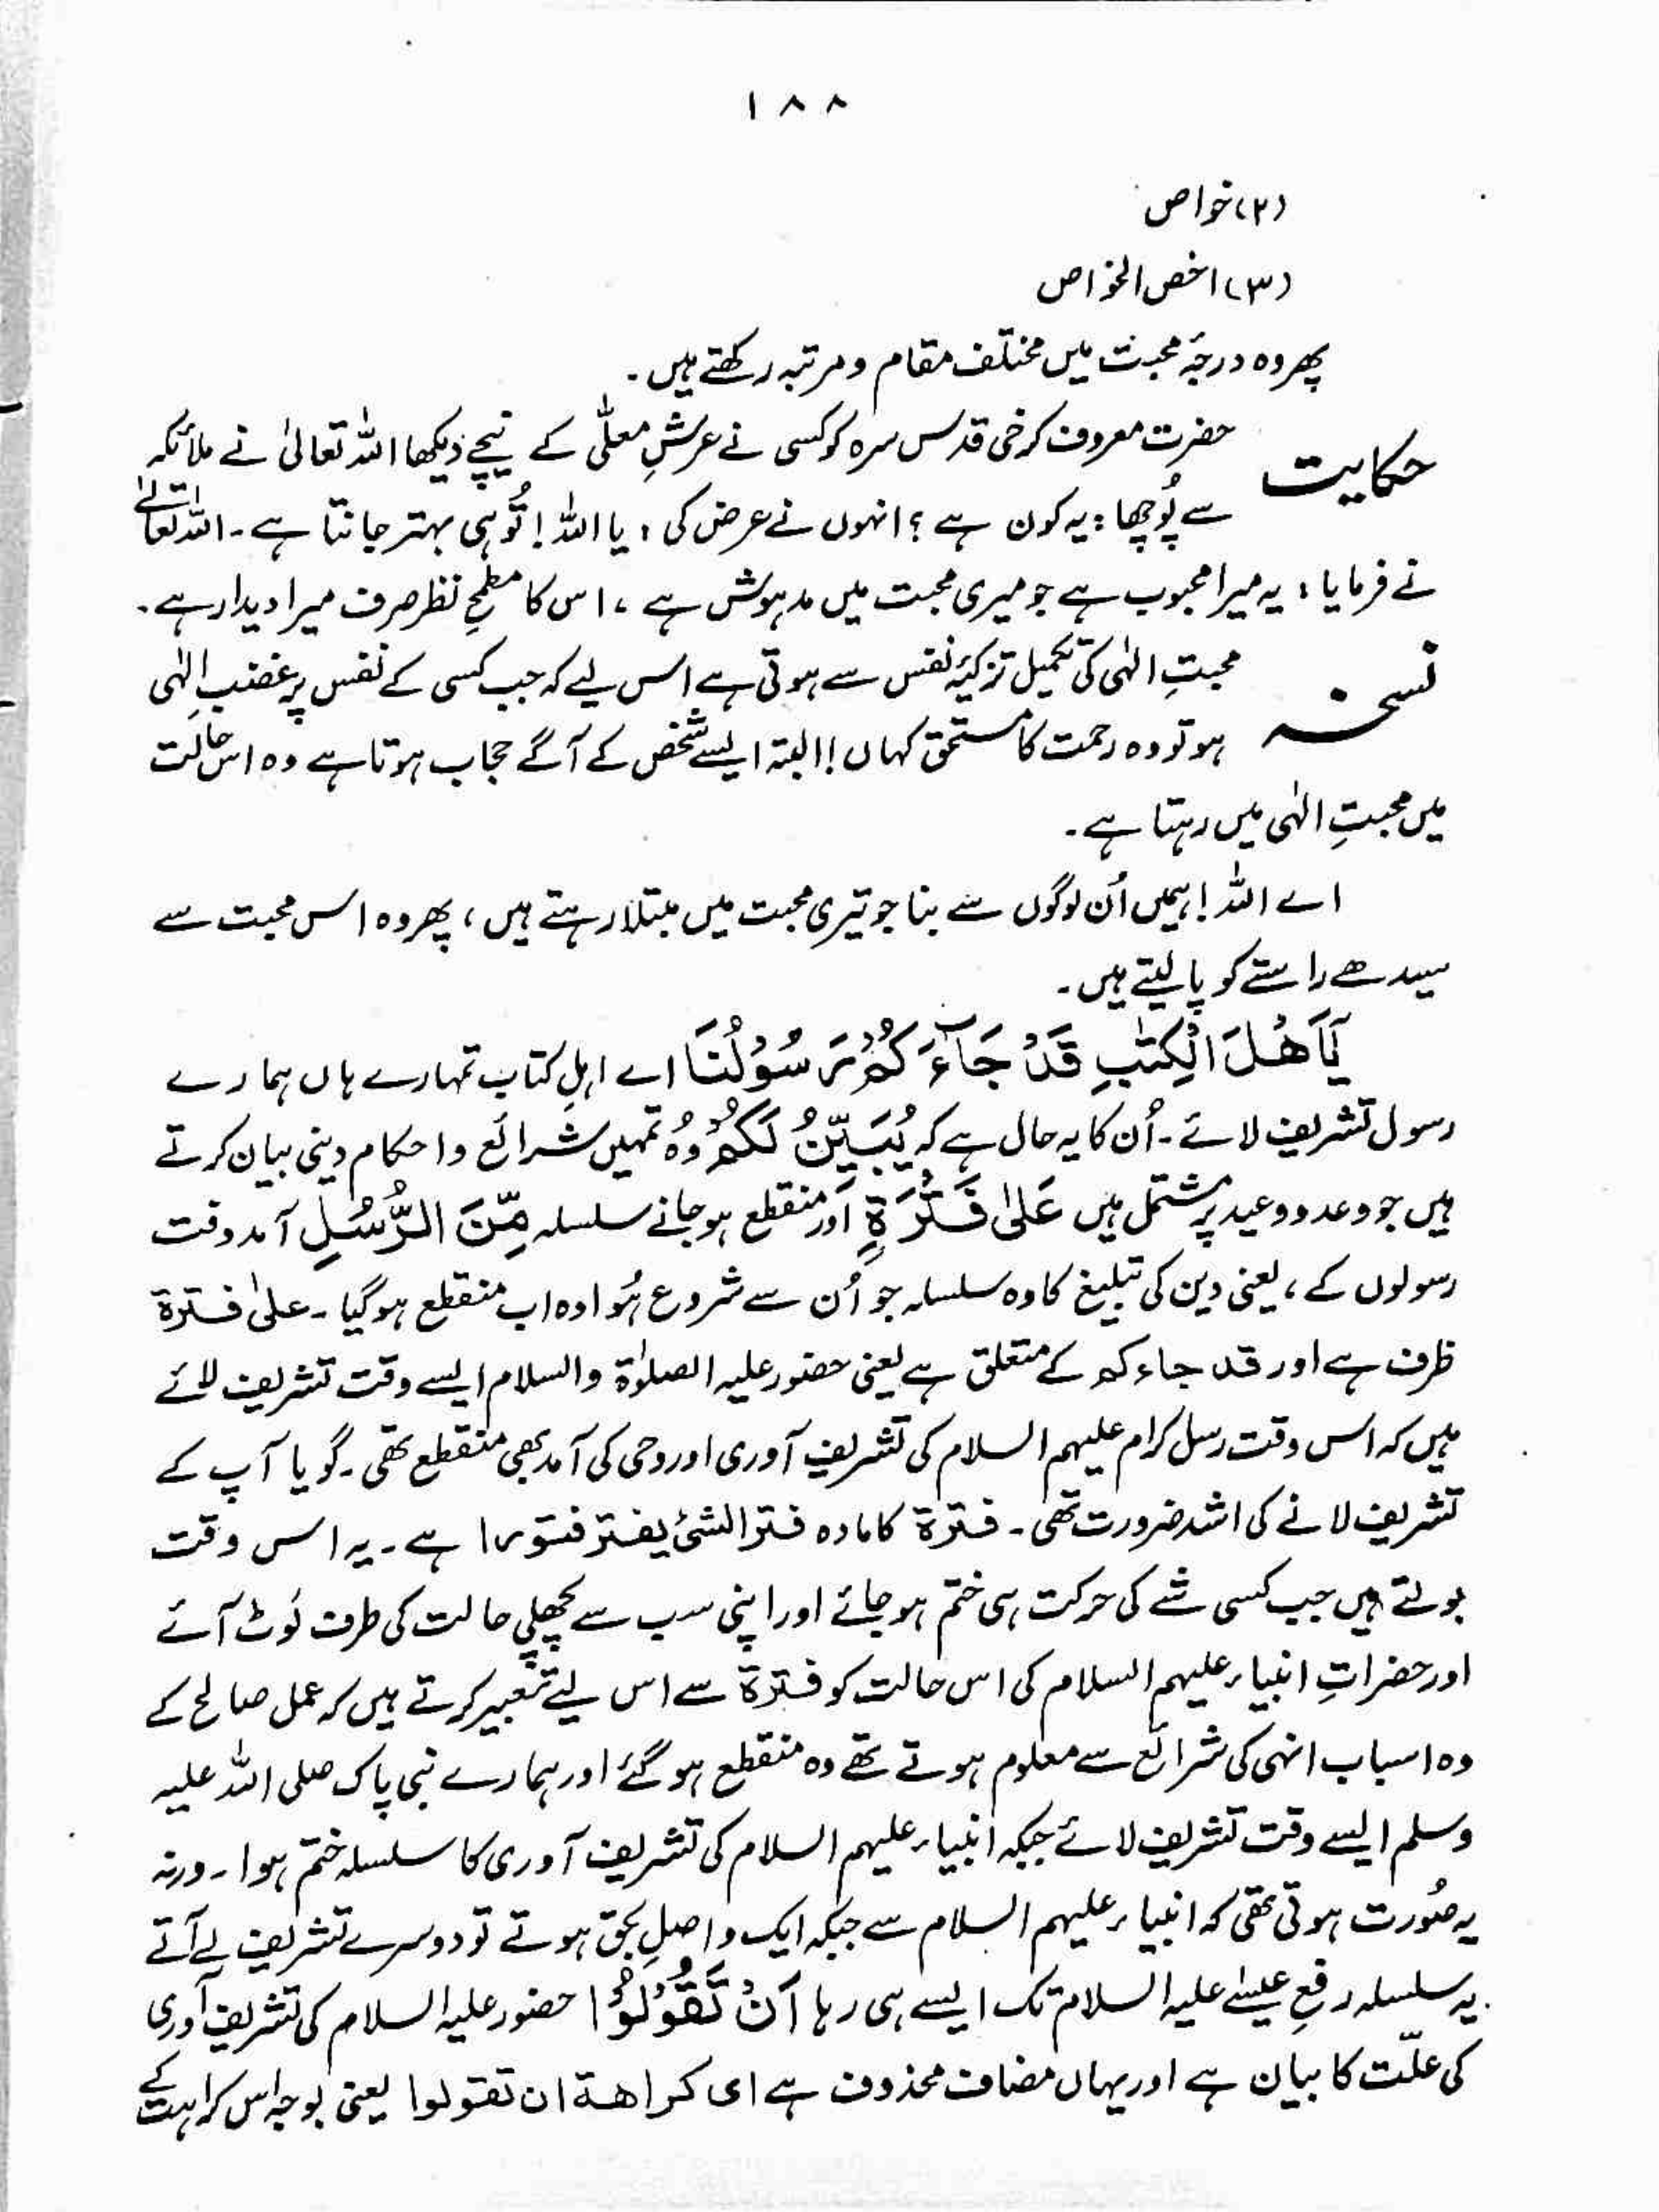 ۱۸۸
(۲) خواص
(۳) اخص الخواص
پھر وہ درجۂ محبت میں مختلف مقام و مرتبہ رکھتے ہیں۔
حکایت حضرت معروف کرخی قدس سرہ کو کسی نے عرشِ معلّٰی کے نیچے دیکھا اللہ تعالیٰ نے ملائکہ
سے پُوچھا : یہ کون ہے ؟ انہوں نے عرض کی : یا اللہ ! تُو ہی بہتر جانتا ہے۔ اللہ تعالےٰ
نے فرمایا : یہ میرا محبوب ہے جو میری محبت میں مدہوش ہے ، اس کا مطمحِ نظر صرف میرا دیدار ہے۔
نسخہ محبتِ الٰہی کی تکمیل تزکیۂ نفس سے ہوتی ہے اس لیے کہ جب کسی کے نفس پر غضبِ الٰہی
ہو تو وہ رحمت کا مستحق کہاں ! البتہ ایسے شخص کے آگے حجاب ہوتا ہے وہ اس حالت
میں محبتِ الٰہی میں رہتا ہے۔
اے اللہ ! ہمیں اُن لوگوں سے بنا جو تیری محبت میں مبتلا رہتے ہیں ، پھر وہ اس محبت سے
سیدھے راستے کو پا لیتے ہیں۔
یٰٓاَھْلَ الْکِتٰبِ قَدْ جَآءَکُمْ رَسُوْلُنَا اے اہلِ کتاب تمہارے ہاں ہمارے
رسول تشریف لائے۔ اُن کا یہ حال ہے کہ یُبَیِّنُ لَکُمْ وُہ تمہیں شرائع و احکام دینی بیان کرتے
ہیں جو وعد و وعید پر مشتمل ہیں عَلیٰ فَتْرَۃٍ اور منقطع ہو جانے سلسلہ مِّنَ الرُّسُلِ آمد و قت
رسولوں کے ، یعنی دین کی تبلیغ کا وہ سلسلہ جو اُن سے شروع ہُوا وہ اب منقطع ہو گیا۔ علیٰ فترۃ
ظرف ہے اور قد جاءکم کے متعلق ہے یعنی حضور علیہ الصلوٰۃ والسلام ایسے وقت تشریف لائے
ہیں کہ اس وقت رسل کرام علیہم السلام کی تشریف آوری اور وحی کی آمد بھی منقطع تھی۔ گویا آپ کے
تشریف لانے کی اشد ضرورت تھی۔ فترۃ کا مادہ فتر الشئ یفتر فتورا ہے۔ یہ اس وقت
بولتے ہیں جب کسی شے کی حرکت ہی ختم ہو جائے اور اپنی سب سے پچھلی حالت کی طرف لوٹ آئے
اور حضراتِ انبیاء علیہم السلام کی اس حالت کو فترۃ سے اس لیے تعبیر کرتے ہیں کہ عمل صالح کے
وہ اسباب انہی کی شرائع سے معلوم ہوتے تھے وہ منقطع ہو گئے اور ہمارے نبی پاک صلی اللہ علیہ
وسلم ایسے وقت تشریف لائے جبکہ انبیاء علیہم السلام کی تشریف آوری کا سلسلہ ختم ہوا۔ ورنہ
یہ صُورت ہوتی تھی کہ انبیاء علیہم السلام سے جبکہ ایک واصلِ بحق ہوتے تو دوسرے تشریف لے آتے
یہ سلسلہ رفعِ عیسٰے علیہ السلام تک ایسے ہی رہا اَنْ تَقُوْلُوْا حضور علیہ السلام کی تشریف آوری
کی علّت کا بیان ہے اور یہاں مضاف محذوف ہے ای کراھۃ ان تقولوا یعنی بوجہ اس کراہت کے